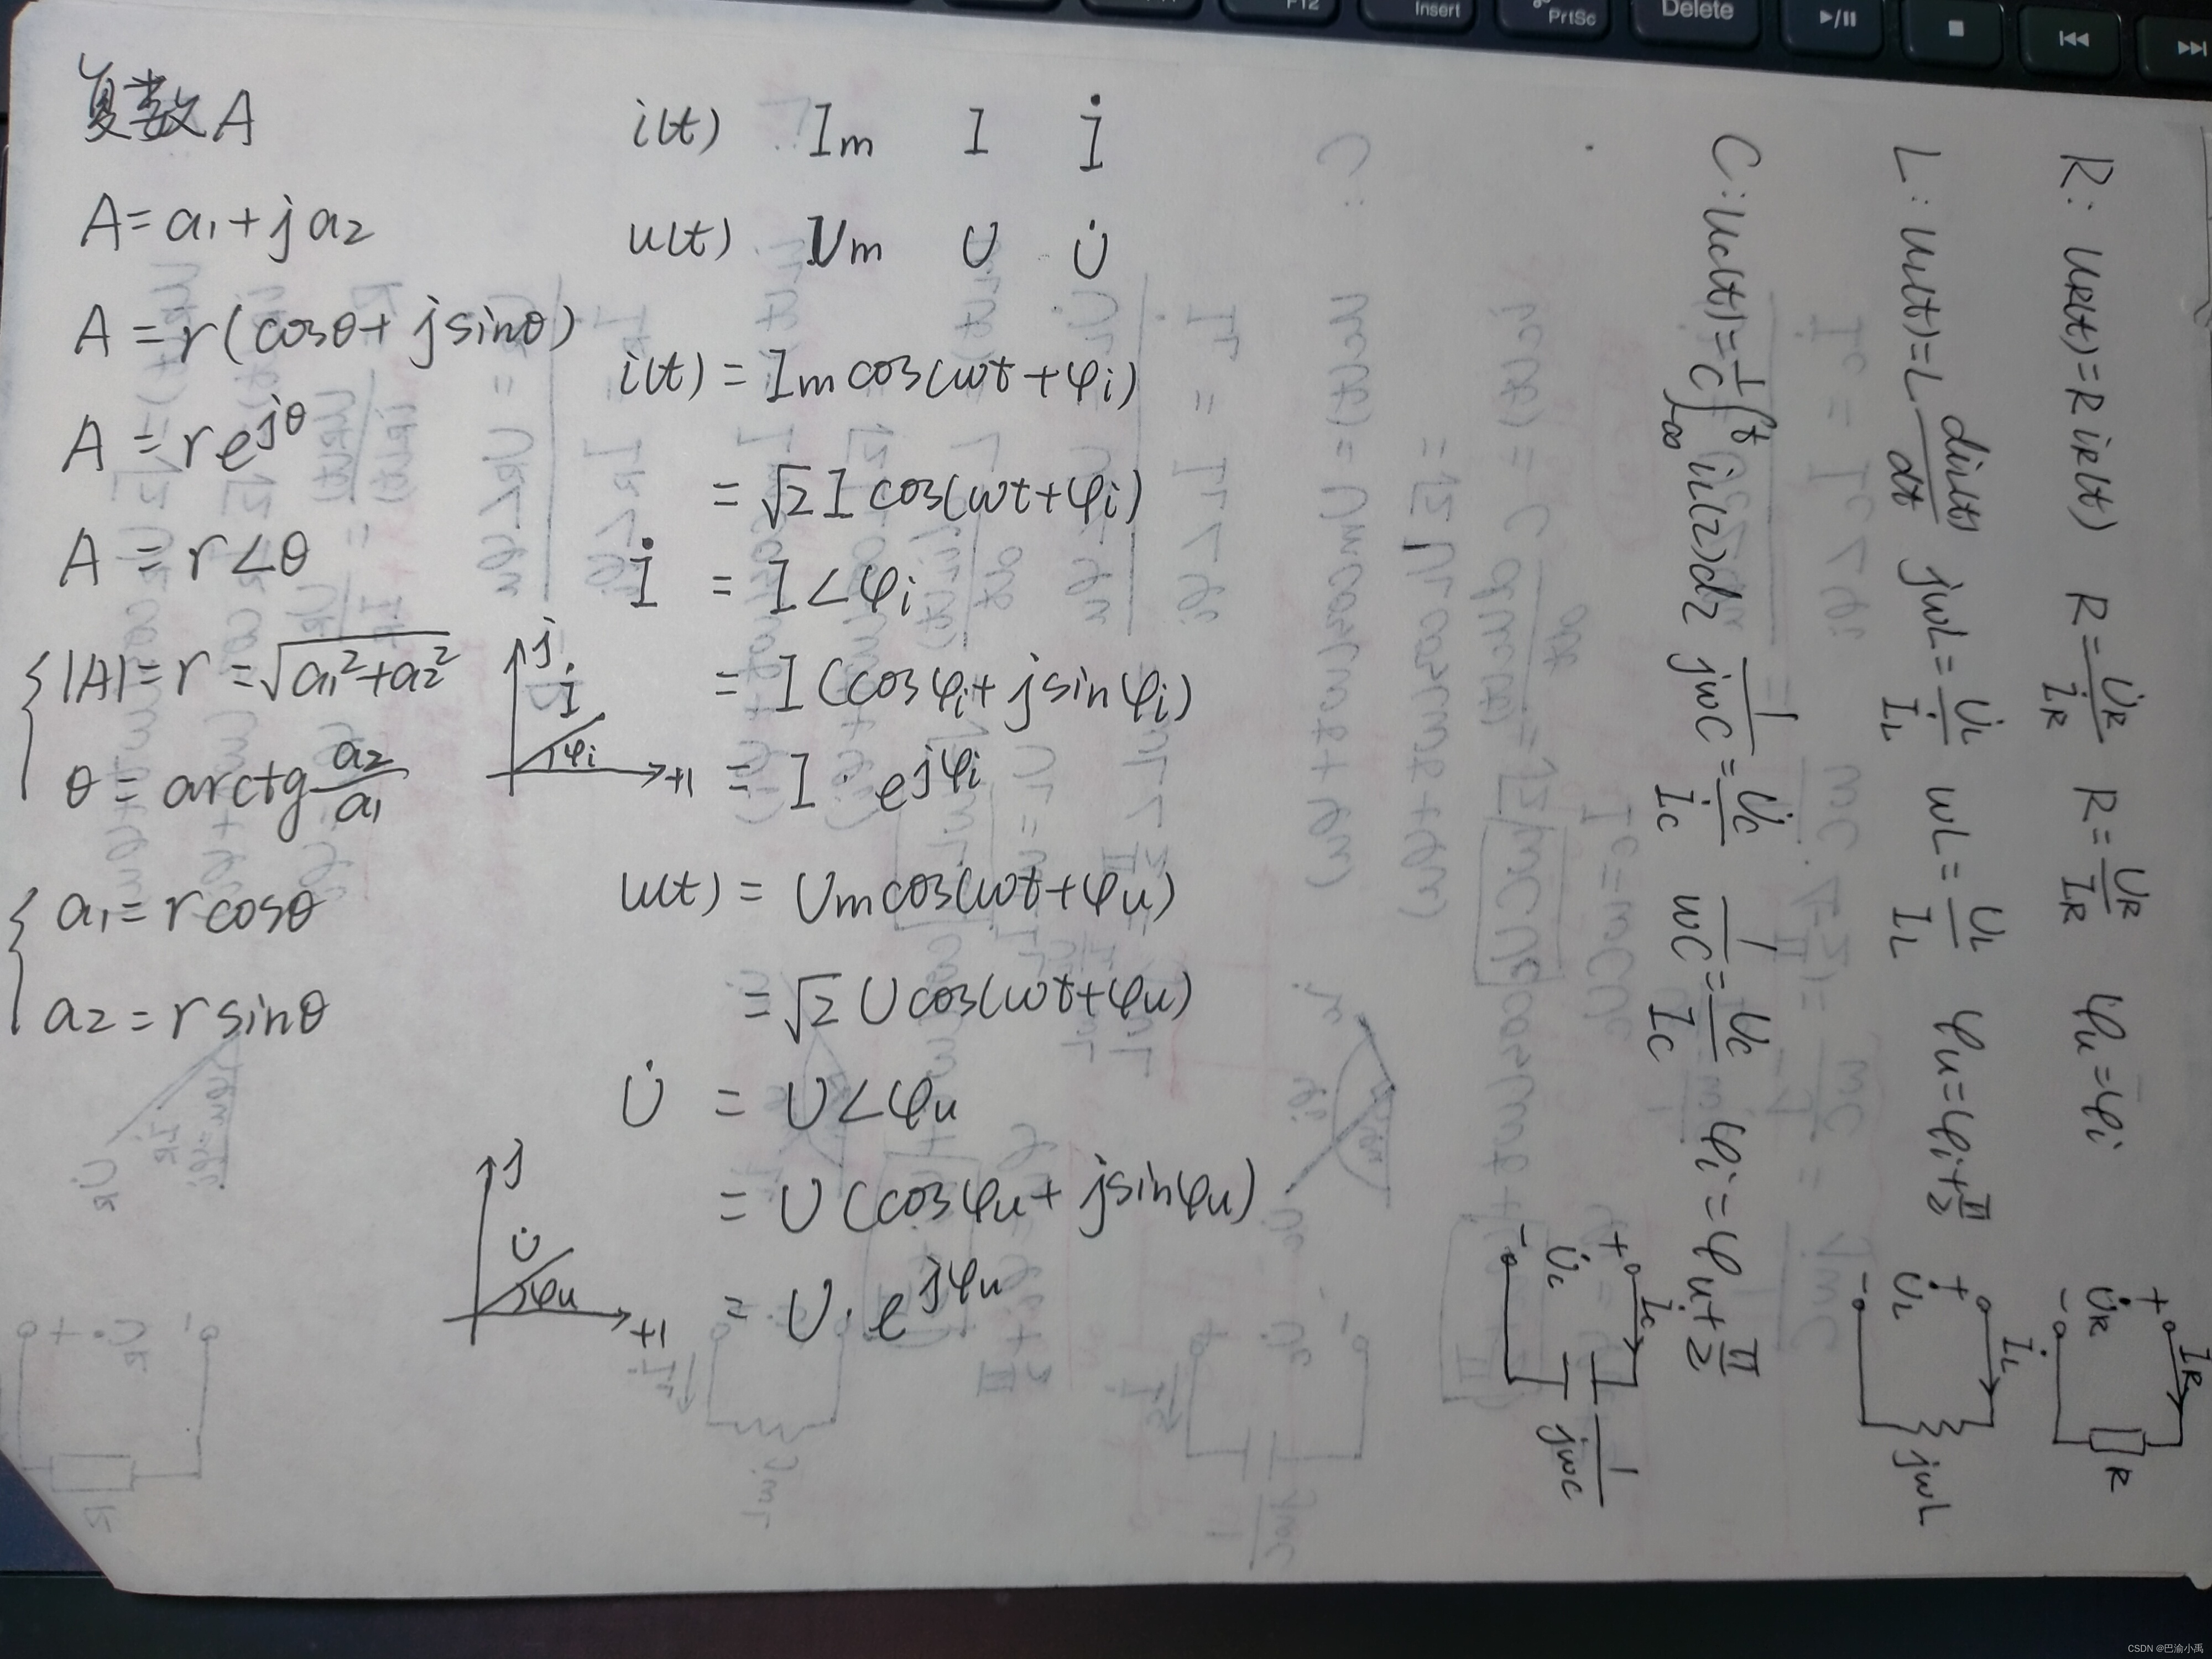 F12 Insert PrtSc Delete
复数A
A=a₁+ja₂
A=r(cosθ+jsinθ)
A=re^{jθ}
A=r∠θ
|A|=r=√(a₁²+a₂²)
θ=arctg a₂/a₁
a₁=rcosθ
a₂=rsinθ
i(t) Im I İ
u(t) Um U U̇
i(t)=Im cos(ωt+φi)
=√2 I cos(ωt+φi)
İ=I∠φi
=I(cosφi+jsinφi)
=I·e^{jφi}
j
İ
φi
+1
u(t)=Um cos(ωt+φu)
=√2 U cos(ωt+φu)
U̇=U∠φu
=U(cosφu+jsinφu)
=U·e^{jφu}
j
U̇
φu
+1
R: uR(t)=R iR(t) R=U̇R/İR R=UR/IR φu=φi
+ U̇R - İR R
L: uL(t)=L diL(t)/dt jωL=U̇L/İL ωL=UL/IL φu=φi+π/2
+ U̇L - İL jωL
C: uC(t)=1/C ∫_{-∞}^{t} iL(τ)dτ 1/jωC=U̇C/İC 1/ωC=UC/IC φi=φu+π/2
+ U̇C - İC 1/jωC
CSDN @巴渝小禹